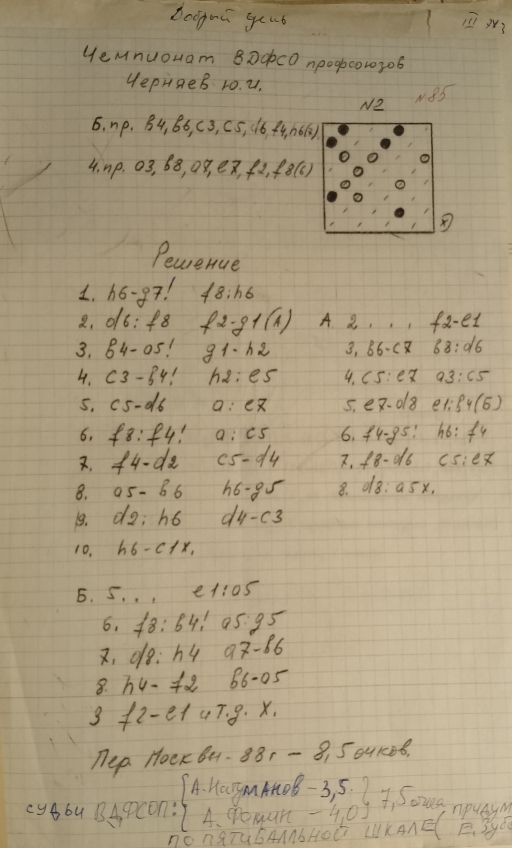 Добрый день
Чемпионат ВДФСО профсоюзов
Черняев Ю.И.
N2 N85
Б.пр. в4, в6, c3, c5, d6, f4, h6(7)
Ч.пр. а3, в8, а7, e7, f2, f8(6)
х)
Решение
1. h6-g7! f8:h6
2. d6:f8 f2-g1(А)
3. в4-а5! g1-h2
4. c3-в4! h2:e5
5. c5-d6 a:e7
6. f8:f4! a:c5
7. f4-d2 c5-d4
8. a5-в6 h6-g5
9. d2:h6 d4-c3
10. h6-c1х.
А. 2... f2-e1
3. в6-c7 в8:d6
4. c5:e7 a3:c5
5. e7-d8 e1:в4(Б)
6. f4-g5! h6:f4
7. f8-d6 c5:e7
8. d8:a5х.
Б. 5... e1:a5
6. f8:в4! a5:g5
7. d8:h4 a7-в6
8. h4-f2 в6-a5
9 f2-e1 и т.д. х.
Пер. Москвы-88г - 8,5 очков.
судьи ВДФСОП: А. Нагуманов - 3,5.
А. Фомин - 4,0 7,5 очка
по пятибалльной шкале